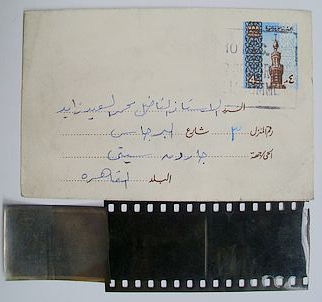 10
٤
السيد الاستاذ الفاضل محسن السعيد زايد
رقم المنزل ٣ شارع البرجاس
الحى/جهة جاردن سيتى
البلد القاهرة